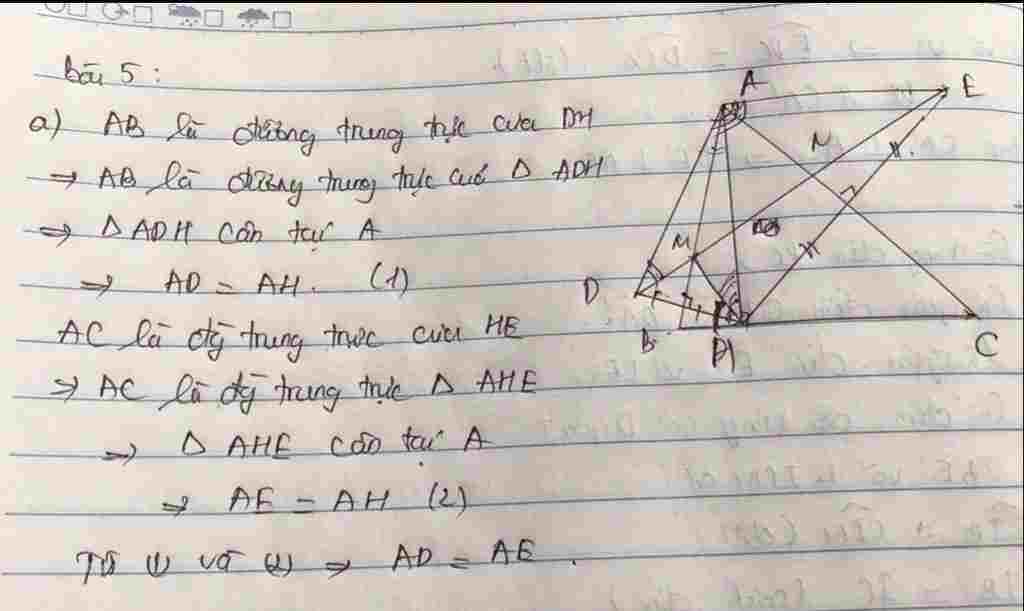 bài 5 :
a) AB là đường trung trực của DH
⇒ AB là đường trung trực của Δ ADH
⇒ Δ ADH cân tại A
⇒ AD = AH. (1)
AC là đg trung trực của HE
⇒ AC là đg trung trực Δ AHE
⇒ Δ AHE cân tại A
⇒ AE = AH (2)
Từ (1) và (2) ⇒ AD = AE.
A
E
N
M
D
B
C